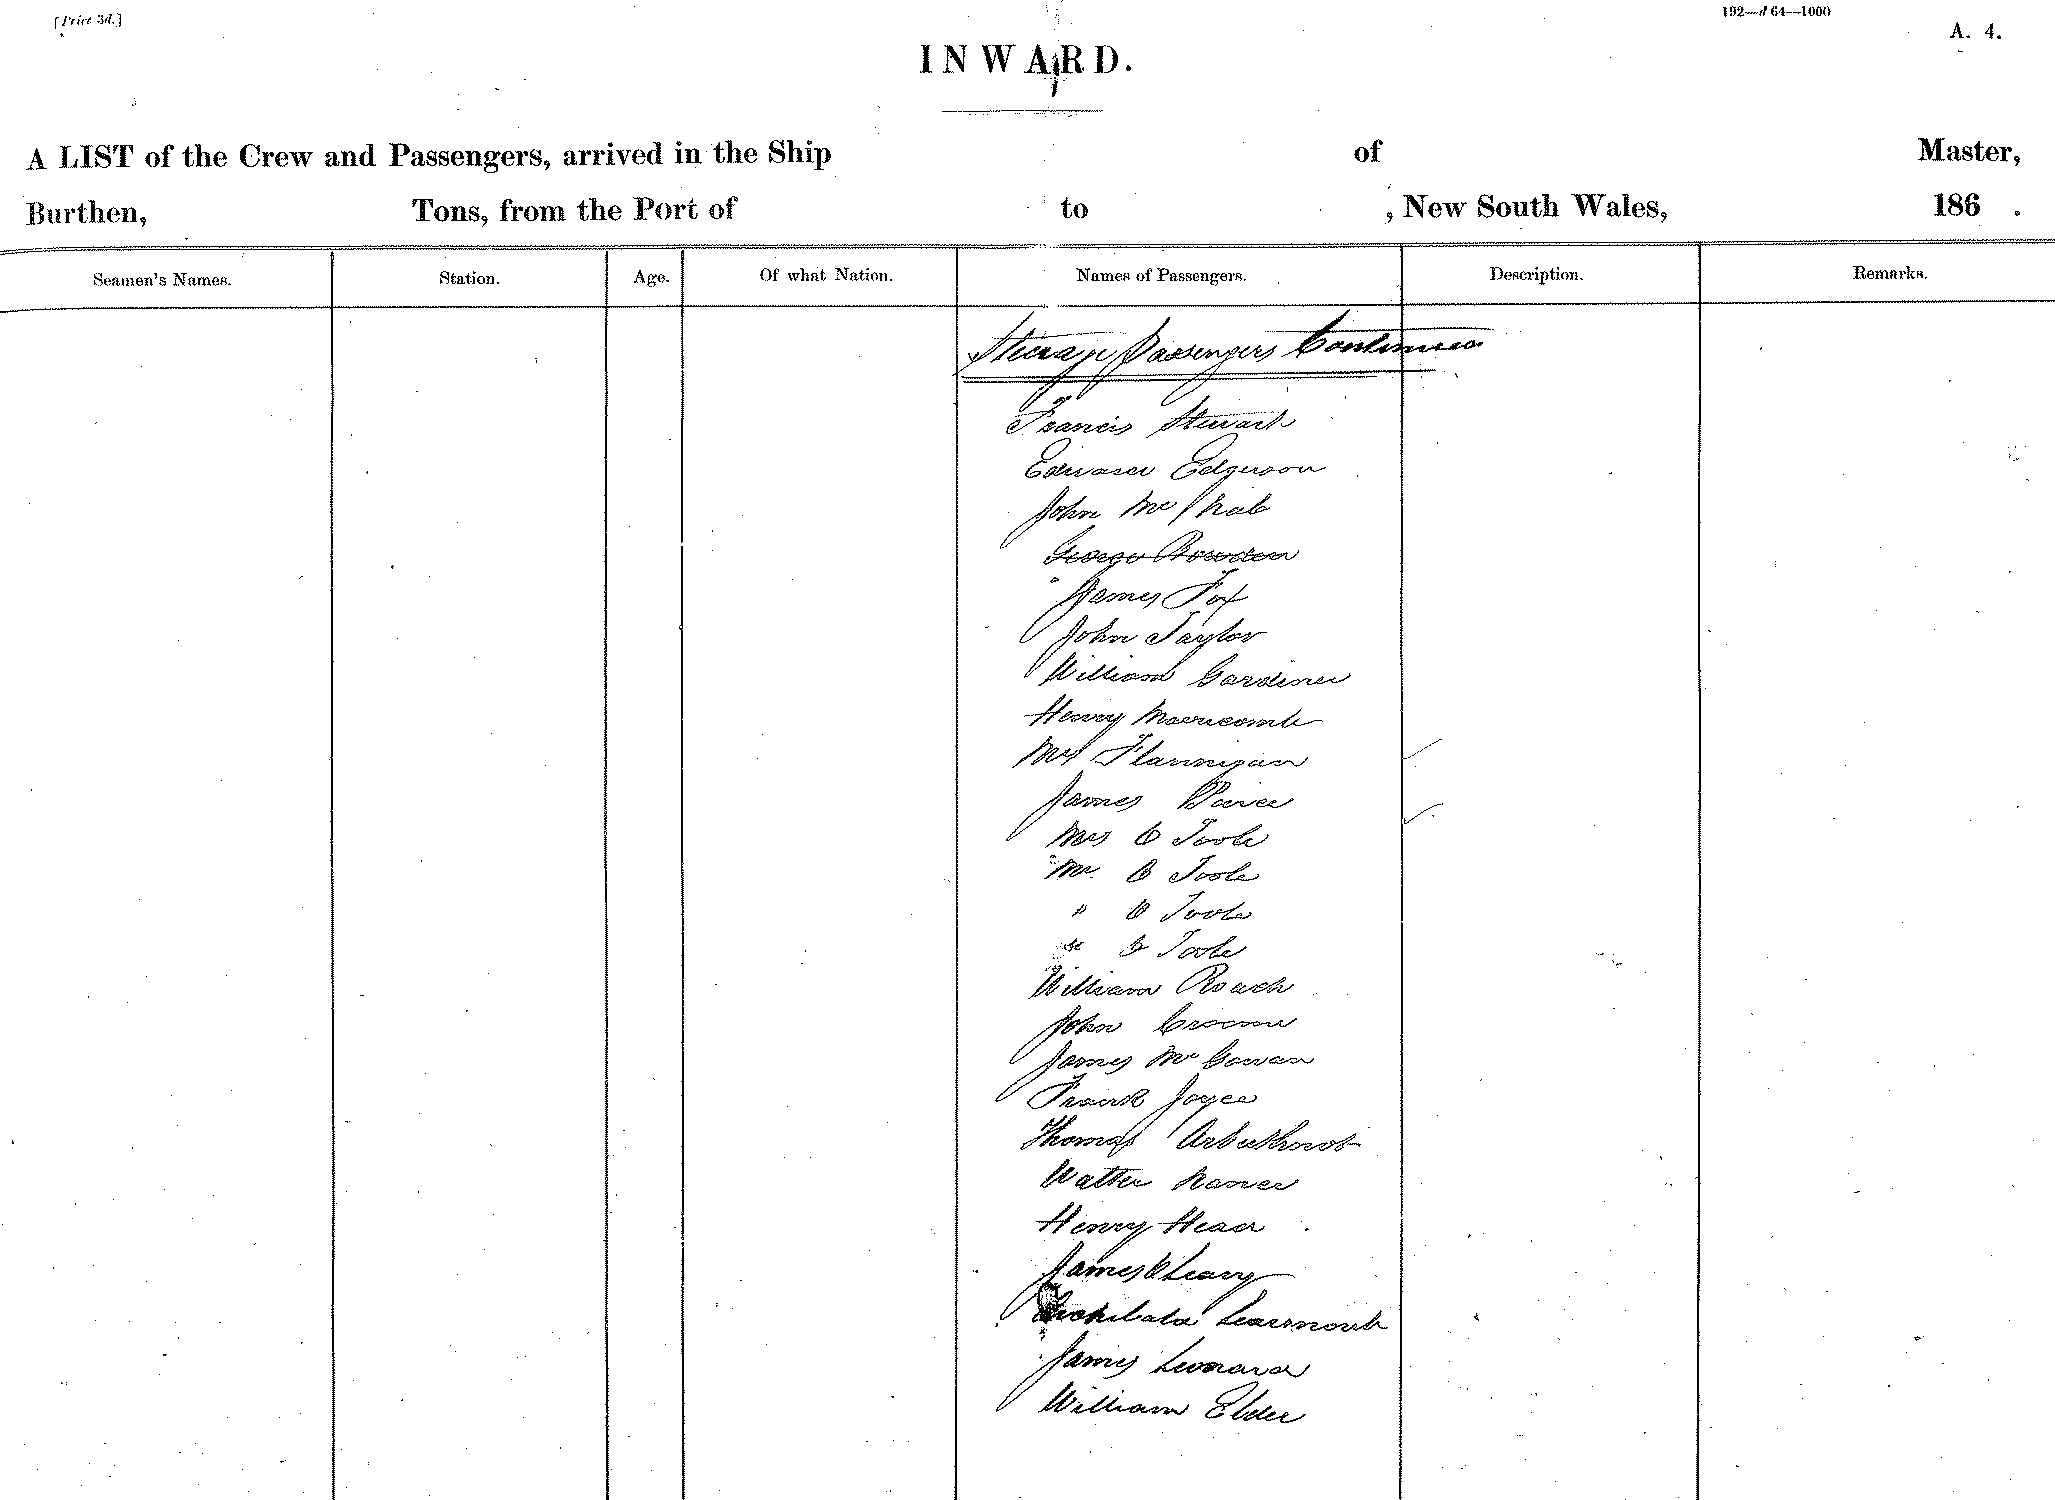 [Price 3d.]
192—d 64—1000
A. 4.
INWARD.
A LIST of the Crew and Passengers, arrived in the Ship of Master,
Burthen, Tons, from the Port of to , New South Wales, 186 .
Seamen's Names. Station. Age. Of what Nation. Names of Passengers. Description. Remarks.
Steerage Passengers Continued
Francis Stewart
Edward Edgeworn
John Mc Nab
George Bowden
James Fox
John Taylor
William Gardiner
Henry
Mrs Flannigan
James
Mrs O Toole
Mr. O Toole
" O Toole
" O Toole
William Roach
John Croome
James Mc Gowan
Frank Joyce
Thomas Arbuthnot
Walter Nance
Henry Head
James O Leary
Archibald Learmonth
James Leonard
William Elder